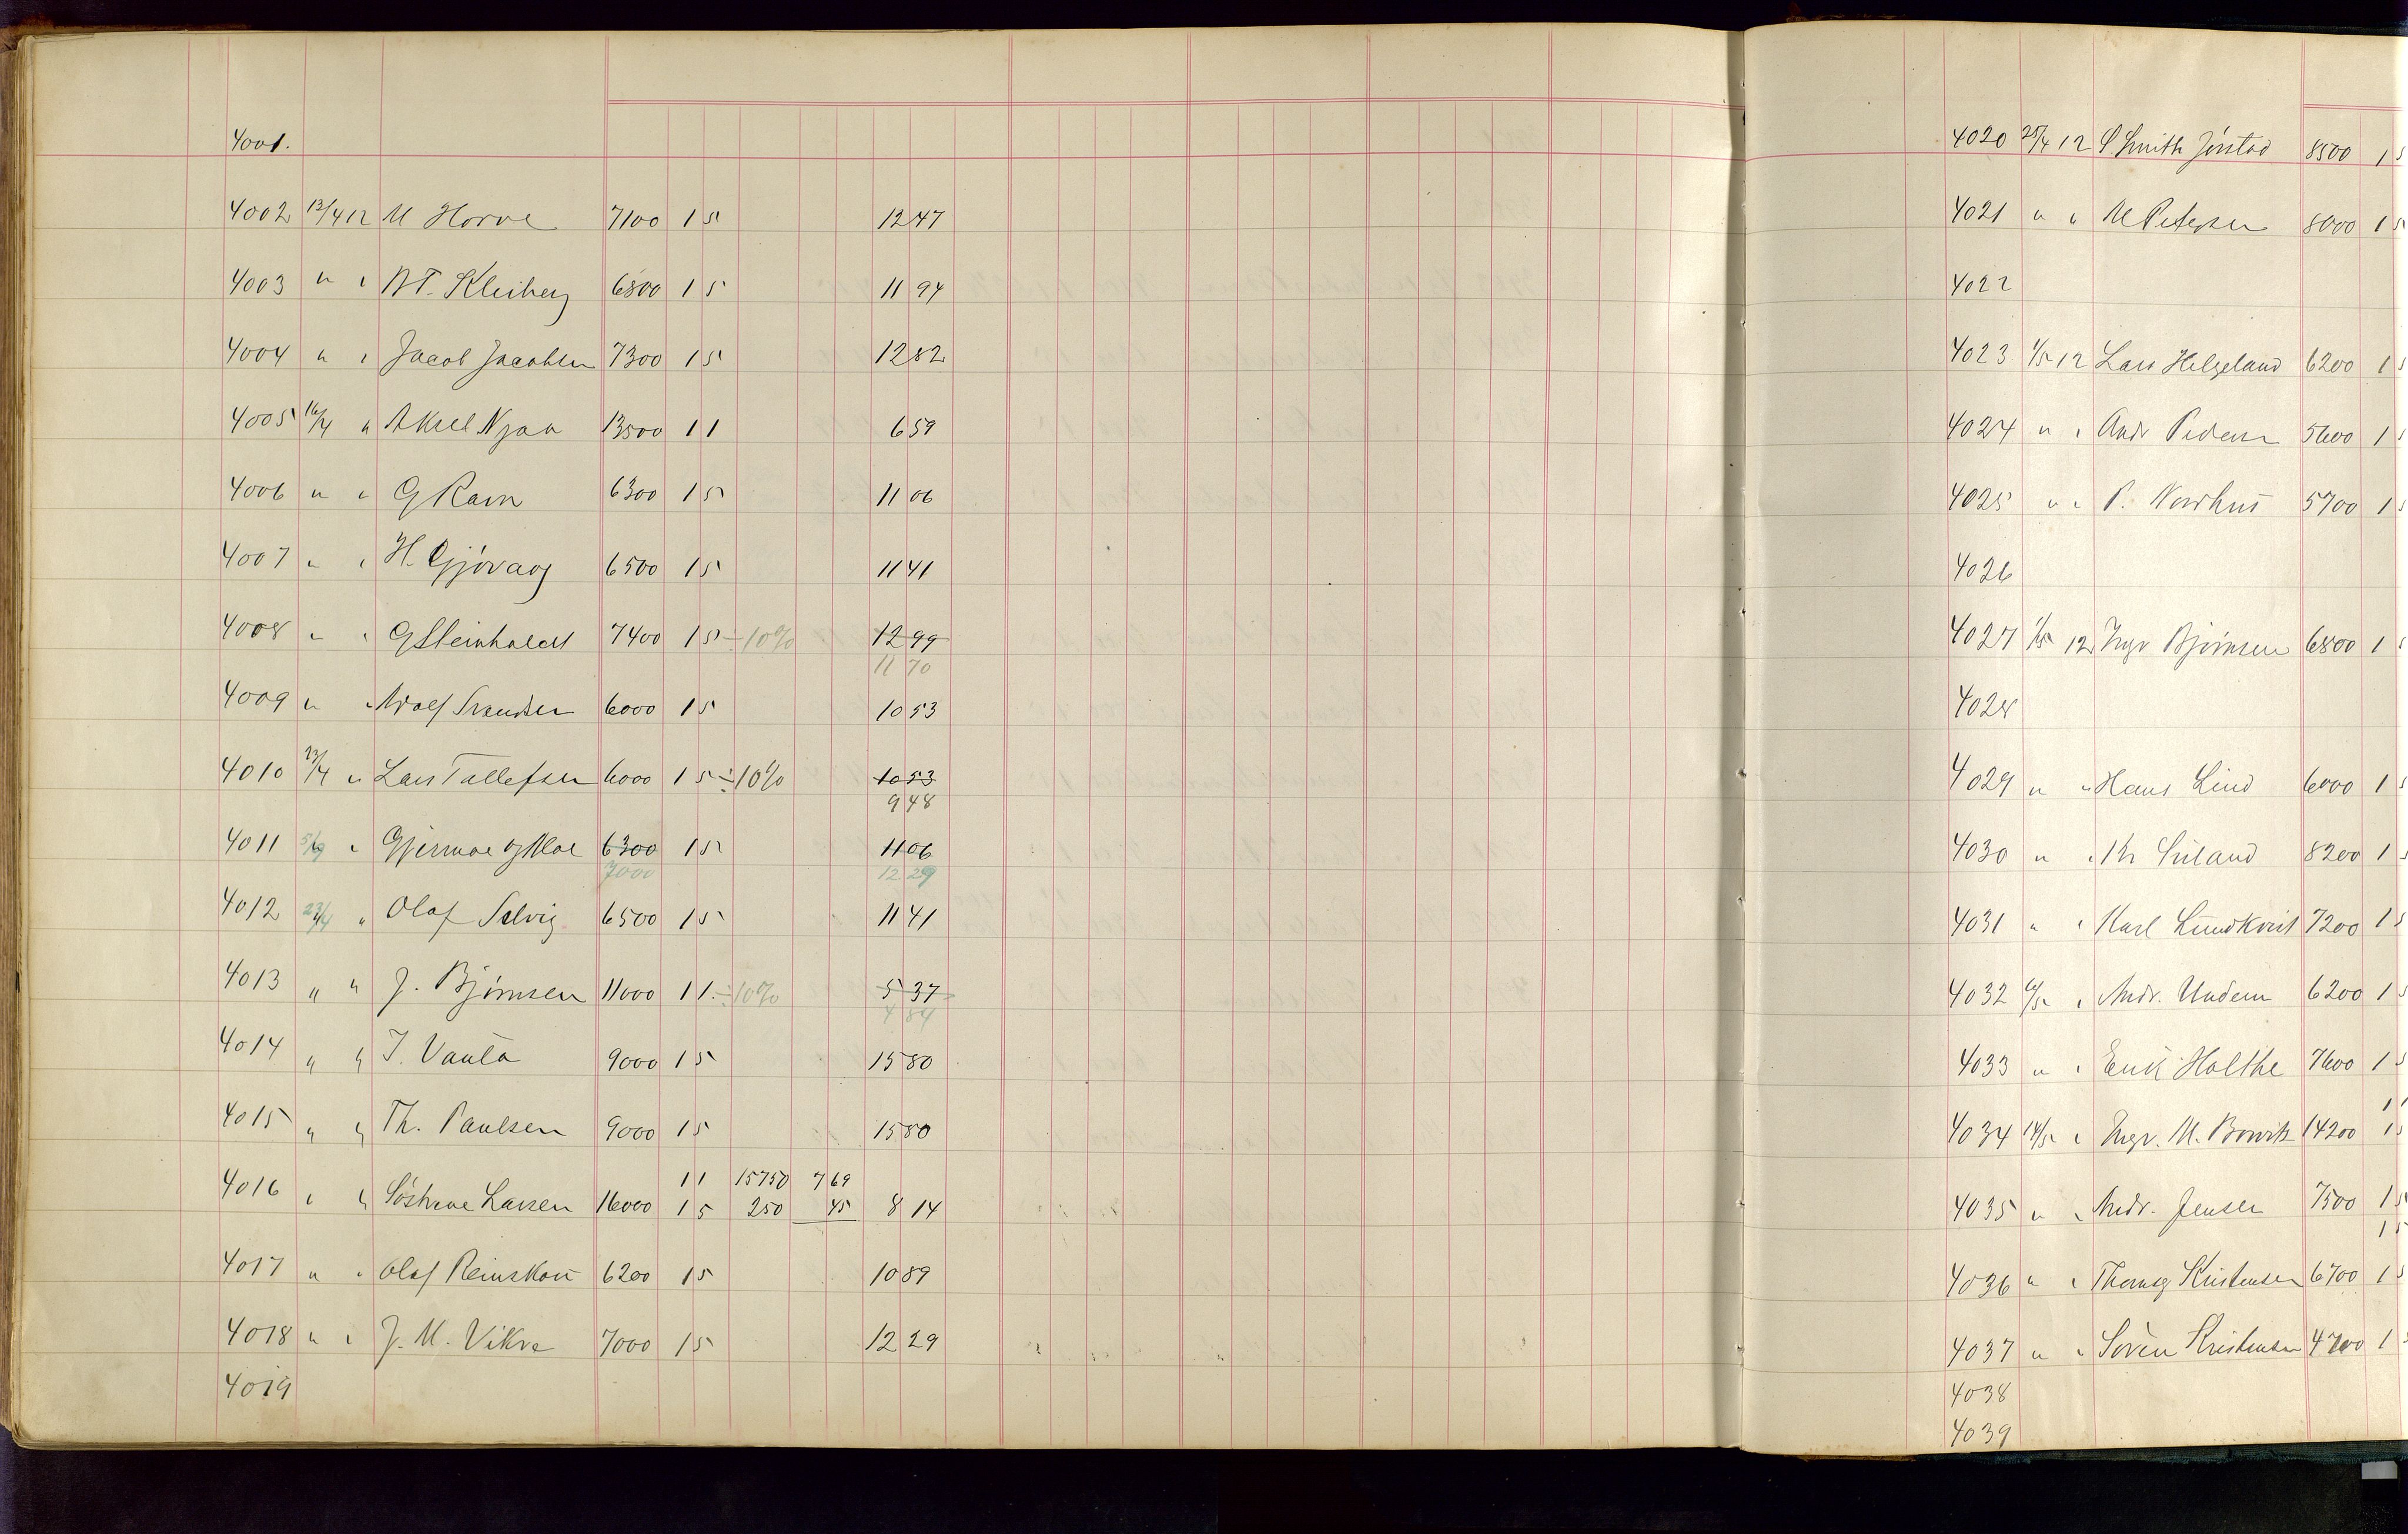 4001.
4002 12/4 12 M Horve 7100 1 5 12 47
4003 " " B T. Kleiberg 6800 1 5 11 94
4004 " " Jacob Jacobsen 7300 1 5 12 82
4005 16/4 " Aksel Njaa 13500 1 1 6 59
4006 " " G Ravn 6300 1 5 11 06
4007 " " H. Gjøvaag 6500 1 5 11 41
4008 " " G Steinholdt 7400 1 5 ÷ 10% 12 99
11 70
4009 " " Adolf Svendsen 6000 1 5 10 53
4010 23/4 " Lars Tallefsen 6000 1 5 ÷ 10% 10 53
9 48
4011 " Gjermoe og Moe 6300 1 5 11 06
7000 12 29
4012 23/4 " Olaf Selvig 6500 1 5 11 41
4013 " " J. Bjørnsen 11000 1 1 ÷ 10% 5 37
4 84
4014 " " T. Vanta 9000 1 5 15 80
4015 " " Th. Paulsen 9000 1 5 15 80
1 1 15750 7 69
4016 " " Søstrene Larsen 16000 1 5 250 45 8 14
4017 " " Olaf Reinskou 6200 1 5 10 89
4018 " " J. M. Vikre 7000 1 5 12 29
4019
4020 25/4 12 Smith Jørstad 8500 1 5
4021 " " M Petersen 8000 1 5
4022
4023 1/5 12 Lars Helgeland 6200 1 5
4024 " " Andr Pedersen 5600 1 5
4025 " " P. Nordhus 5700 1 5
4026
4027 1/5 12 Ingv Bjørnsen 6800 1 5
4028
4029 " " Hans Lind 6000 1 5
4030 " " Kr Suland 8200 1 5
4031 " " Karl Lundkvist 7200 1 5
4032 6/5 " Andr. Undem 6200 1 5
4033 " " Erik Holthe 7600 1 5
1 1
4034 14/5 " Ingv. M. 14200 1 5
4035 " " Andr. Jensen 7500 1 5
1 5
4036 " " Thomas Kristensen 6700 1 5
4037 " " Søren Kristensen 4700 1
4038
4039